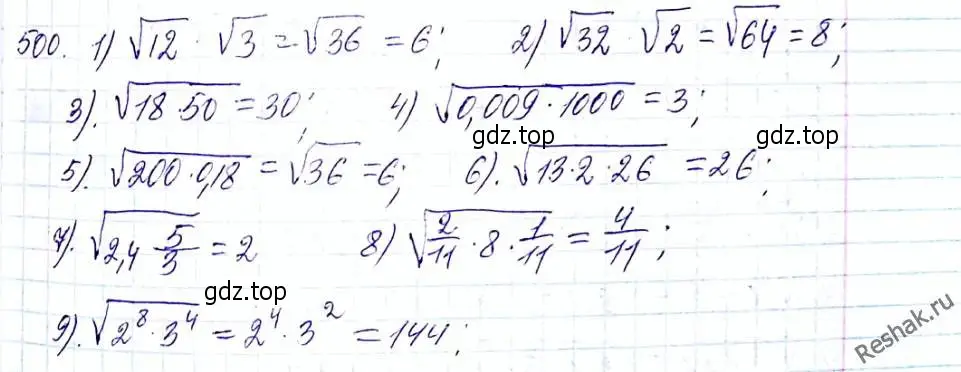 500. 1) √12 · √3 = √36 = 6; 2) √32 · √2 = √64 = 8;
3). √(18 · 50) = 30; 4) √(0,009 · 1000) = 3;
gdz.top gdz.top
5). √(200 · 0,18) = √36 = 6; 6). √(13 · 2 · 26) = 26;
7). √(2,4 · 5/3) = 2 8) √(2/11 · 8 · 1/11) = 4/11;
gdz.top
9). √(2⁸ · 3⁴) = 2⁴ · 3² = 144;
Reshak.ru